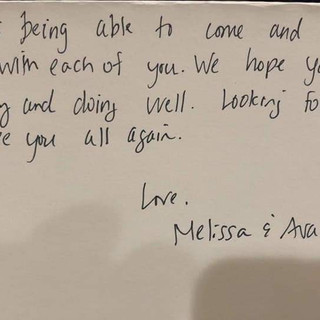 being able to come and
with each of you. We hope yo
and doing well. Looking fo
e you all again.
Love.
Melissa & Ava